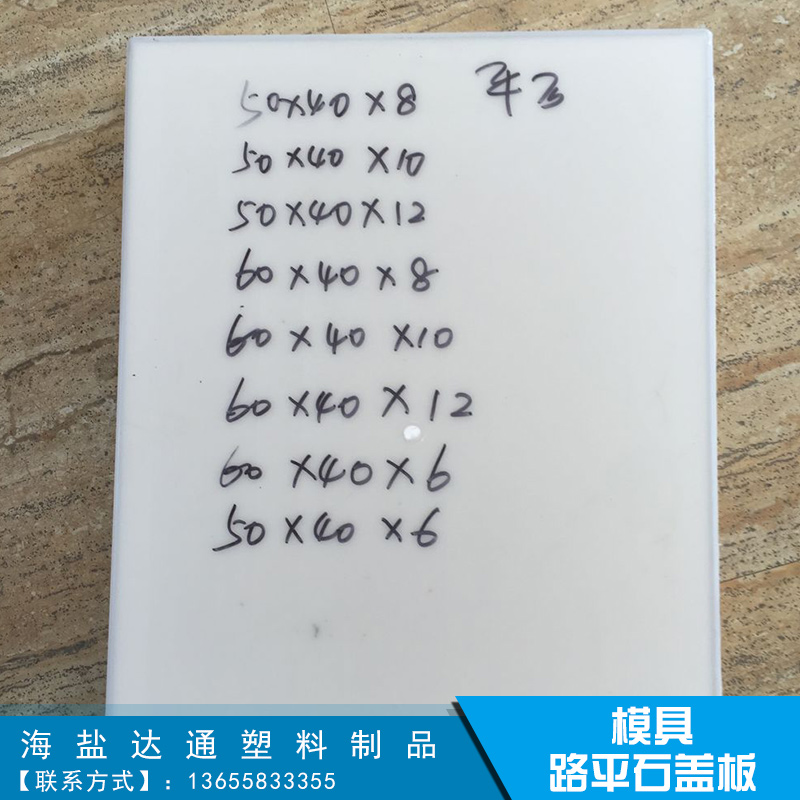 50×40×8
50×40×10
50×40×12
60×40×8
60×40×10
60×40×12
60×40×6
50×40×6
海盐达通塑料制品
【联系方式】:13655833355
模具
路平石盖板